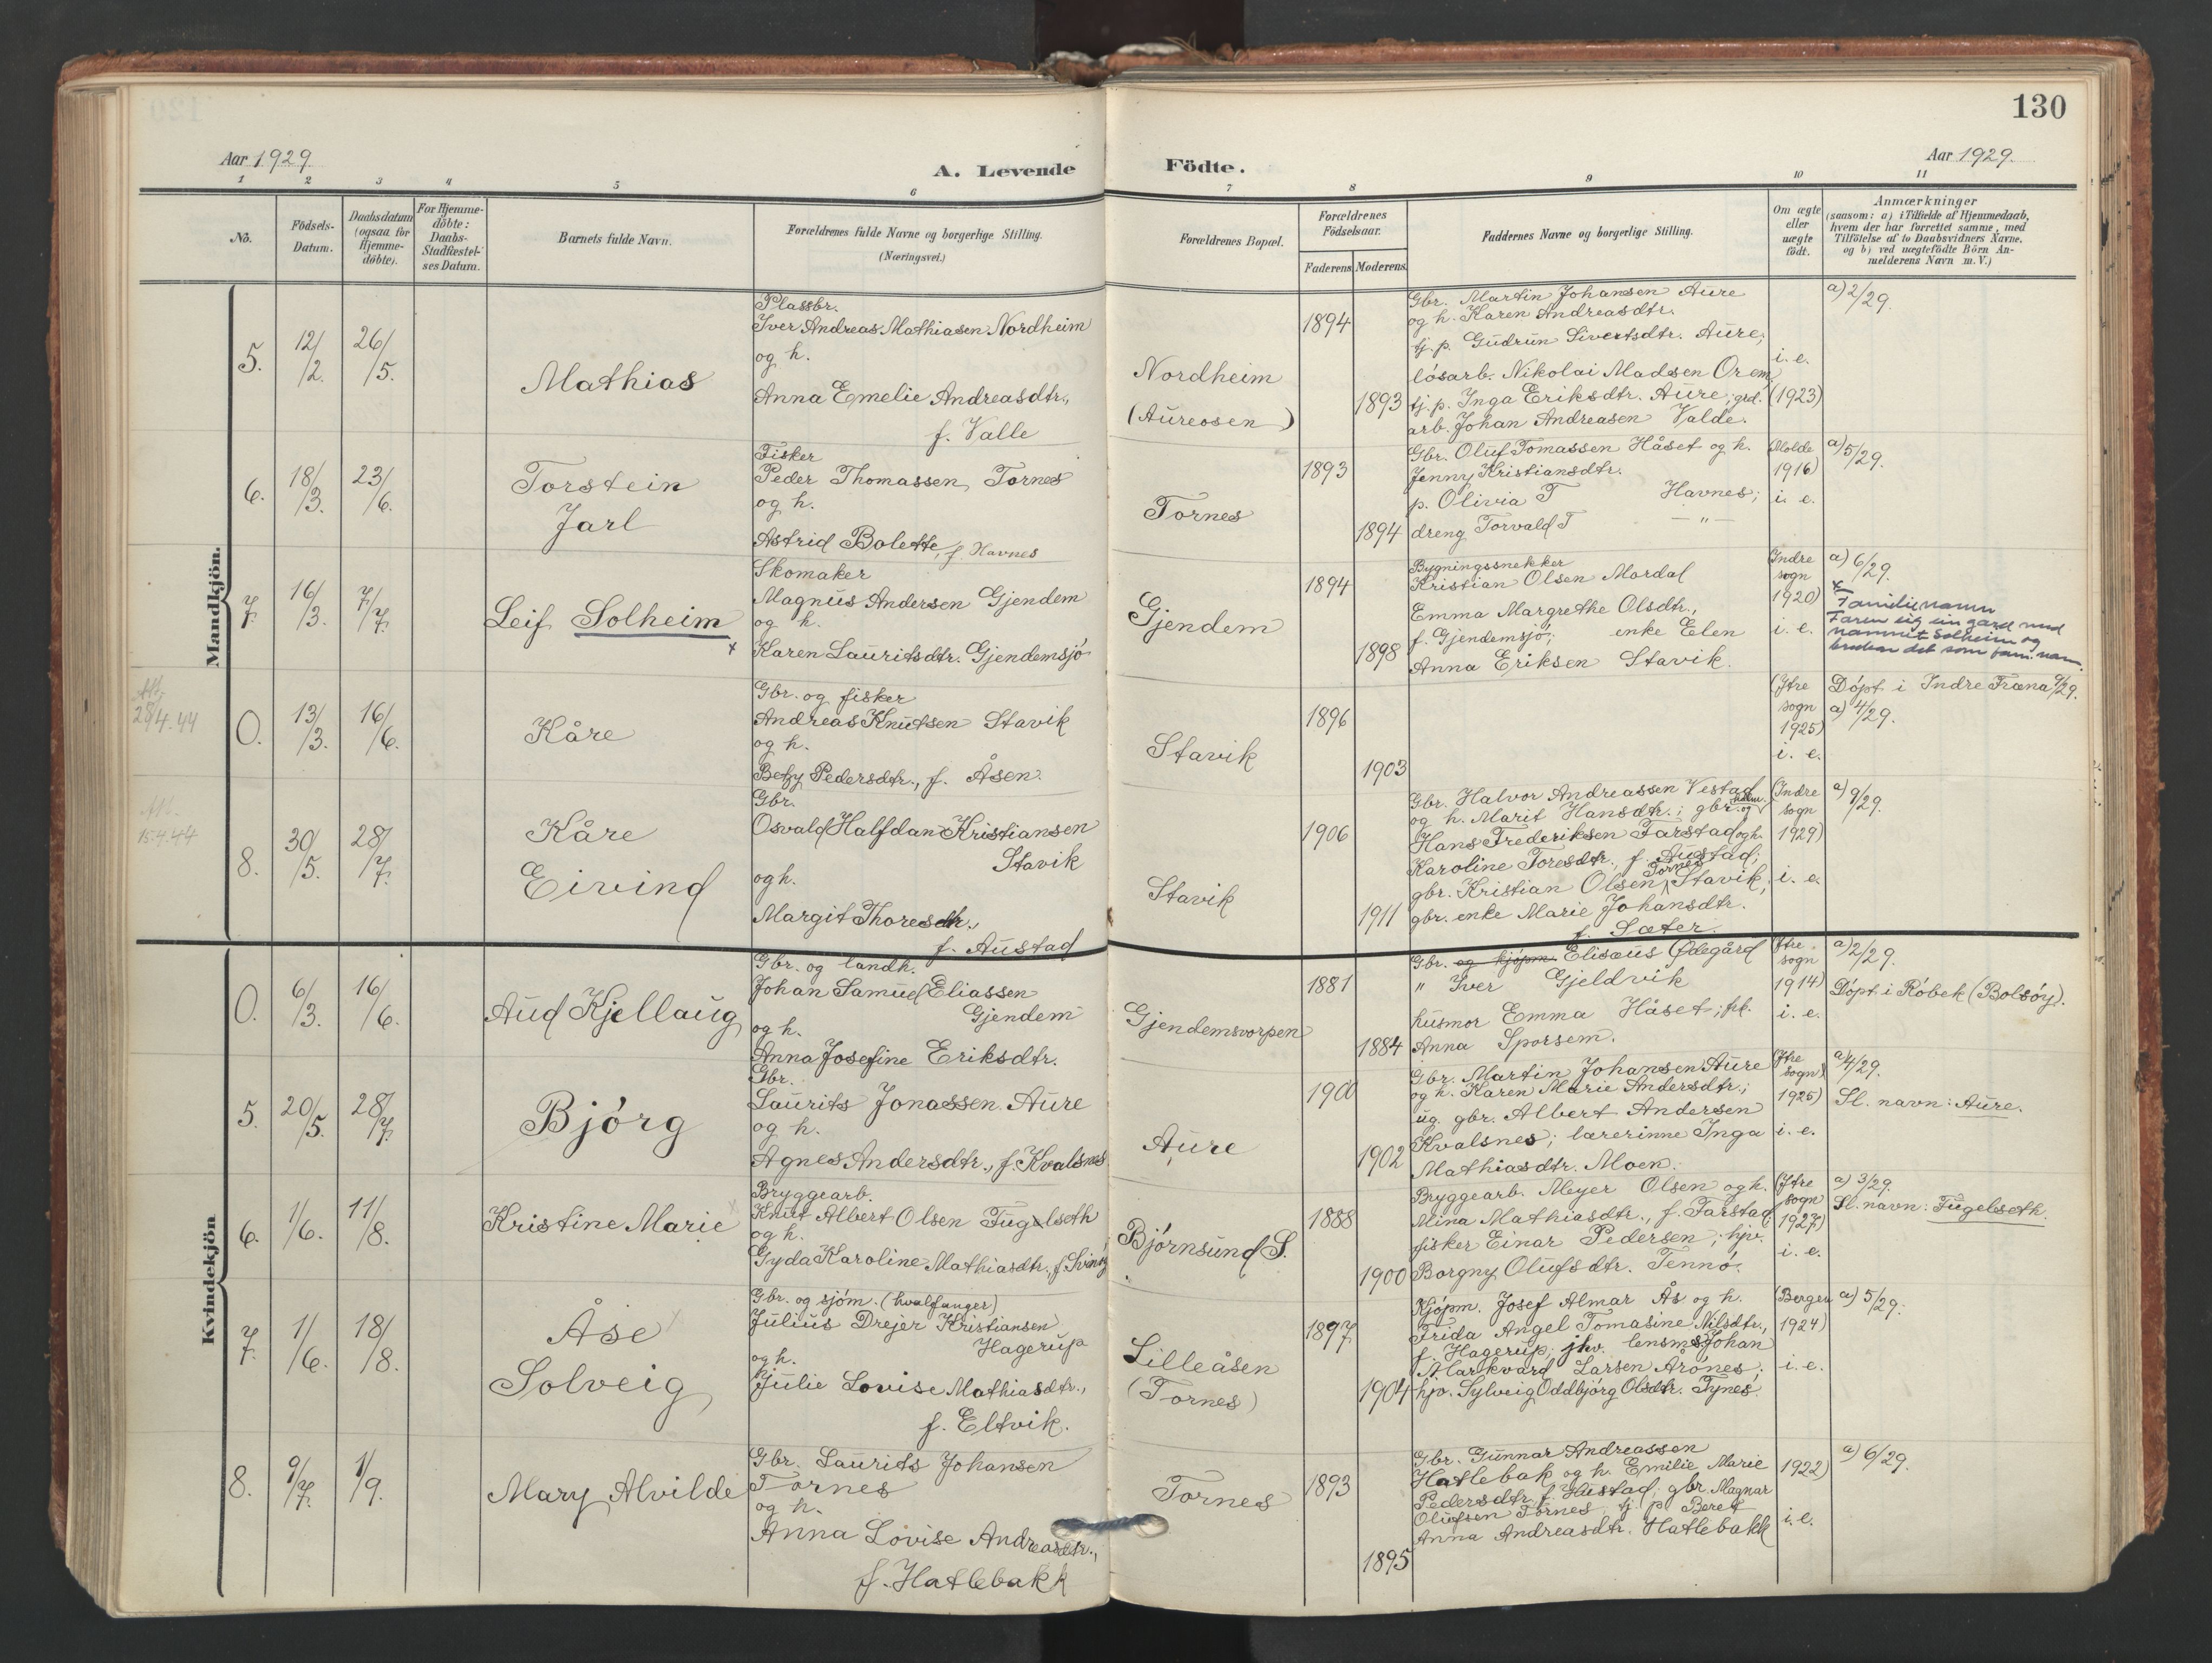 130
Aar 1929.
A. Levende
Födte.
Aar 1929.
1 2 3 4 5 6 7 8 9 10 11
No.
Födsels-
Datum.
Daabsdatum
(ogsaa for
Hjemme-
döbte).
For Hjemme-
döbte:
Daabs-
Stadfæstel-
ses Datum.
Barnets fulde Navn.
Forældrenes fulde Navne og borgerlige Stilling.
(Næringsvei.)
Forældrenes Bopæl.
Forældrenes
Födselsaar.
Faderens.
Moderens.
Faddernes Navne og borgerlige Stilling.
Om ægte
eller
uægte
födt.
Anmærkninger
(saasom: a) i Tilfælde af Hjemmedaab,
hvem der har forrettet samme, med
Tilföielse af to Daabsvidners Navne,
og b) ved uægtefödte Börn An-
melderens Navn m. V.)
Mandkjön.
5.
12/2.
26/5.
Mathias
Plassbr.
Iver Andreas Mathiasen Nordheim
og h.
Anna Emelie Andreasdtr.,
f. Valle
Nordheim
(Aureosen)
1894
1893
Gbr. Martin Johansen Aure
og h. Karen Andreasdtr.
tj. p. Gudrun Sivertsdtr. Aure;
lösarb. Nikolai Madsen Orem
tj. p. Inga Eriksdtr. Aure; grd.
arb. Johan Andreasen Valde.
i. e.
(1923)
a) 2/29.
6.
18/3.
23/6.
Torstein
Jarl
Fisker
Peder Thomassen Tornes
og h.
Astrid Bolette, f. Havnes
Tornes
1893
1894
Gbr. Oluf Tomassen Håset og h.
Jenny Kristiansdtr.
p. Olivia T Havnes;
dreng Torvald T — " —
(Molde
1916)
i. e.
a) 5/29.
7.
16/3.
7/7.
Leif Solheim x
Skomaker
Magnus Andersen Gjendem
og h.
Karen Lauritsdtr. Gjendemsjö
Gjendem
1894
1898
Bygningssnekker
Kristian Olsen Mordal
Emma Margrethe Olsdtr.,
f. Gjendemsjö; enke Elen
Anna Eriksen Stavik.
(Indre
sogn
1920)
i. e.
a) 6/29.
x
Familienamn
ein gard med
namnet Solheim og
det som fam. nam.
28/4.44
0.
13/3.
16/6.
Kåre
Gbr. og fisker
Andreas Knutsen Stavik
og h.
Betzy Pedersdtr., f. Åsen.
Stavik
1896
1903
(Ytre
sogn
1925)
i. e.
Döpt i Indre Fræna 9/29.
a) 4/29.
15.4.44
8.
30/5.
28/7.
Kåre
Eivind
Gbr.
Osvald Halfdan Kristiansen
Stavik
og h.
Margit Thoresdtr.,
f. Austad
Stavik
1906
1911
Gbr. Halvor Andreassen Vestad
og h. Marit Hansdtr.; gbr. og
Hans Frederiksen Farstad og h.
Karoline Toresdtr., f. Austad;
gbr. Kristian Olsen Tornes Stavik;
gbr. enke Marie Johansdtr.
f. Sæter.
(Indre
sogn
1929)
i. e.
a) 9/29.
Kvindekjön
0.
6/3.
16/6.
Aud Kjellaug
Gbr. og landh.
Johan Samuel Eliassen
Gjendem
og h.
Anna Josefine Eriksdtr.
Gjendemsvorpen
1881
1884
Gbr. og kjöpm. Elisæus Ødegård
" Iver Gjeldvik
husmor Emma Håset; frk.
Anna Sporsem.
(Ytre
sogn
1914)
i. e.
a) 2/29.
Döpt i Röbek (Bolsöy).
5.
20/5.
28/7.
Björg
Gbr.
Laurits Jonassen Aure
og h.
Agnes Andersdtr., f. Kvalsnes
Aure
1900
1902
Gbr. Martin Johansen Aure
og h. Karen Marie Andersdtr.;
ug. gbr. Albert Andersen
Kvalsnes; lærerinne Inga
Mathiasdtr. Moen.
(Ytre
sogn)
1925)
i. e.
a) 4/29.
Sl. navn: Aure.
6.
1/6.
11/8.
Kristine Marie
Bryggearb.
Knut Albert Olsen Fugelseth
og h.
Gyda Karoline Mathiasdtr., f.
Björnsund S.
1888
1900
Bryggearb. Meyer Olsen og h.
Mina Mathiasdtr., f. Farstad
fisker Einar Pedersen; hpv.
Borgny Olufsdtr. Tennö.
(Ytre
sogn
1927)
i. e.
a) 3/29.
Sl. navn: Fugelseth.
7.
1/6.
18/8.
Åse
Solveig
Gbr. og sjöm. (hvalfanger)
Julius Drejer Kristiansen
Hagerup
og h.
Julie Lovise Mathiasdtr.,
f. Eltvik.
Lilleåsen
(Tornes)
1897
1904
Kjöpm. Josef Almar Ås og h.
Frida Angel Tomasine Nilsdtr.,
f. Hagerup; jhv. lensm. Johan
Markvard Larsen Årönes;
hpv. Sylveig Oddbjörg Olsdtr. Tynes.
(Bergen
1924)
i. e.
a) 5/29.
8.
9/7.
1/9.
Mary Alvilde
Gbr. Laurits Johansen
Tornes
og h.
Anna Lovise Andreasdtr.,
f. Hatlebakk
Tornes
1893
1895
Gbr. Gunnar Andreassen
Hatlebak og h. Emilie Marie
Pedersdtr. f. Hustad; gbr. Magnar
Olufsen Tornes, tj. p. Beret
Anna Andreasdtr. Hatlebakk
1922)
i. e.
a) 6/29.